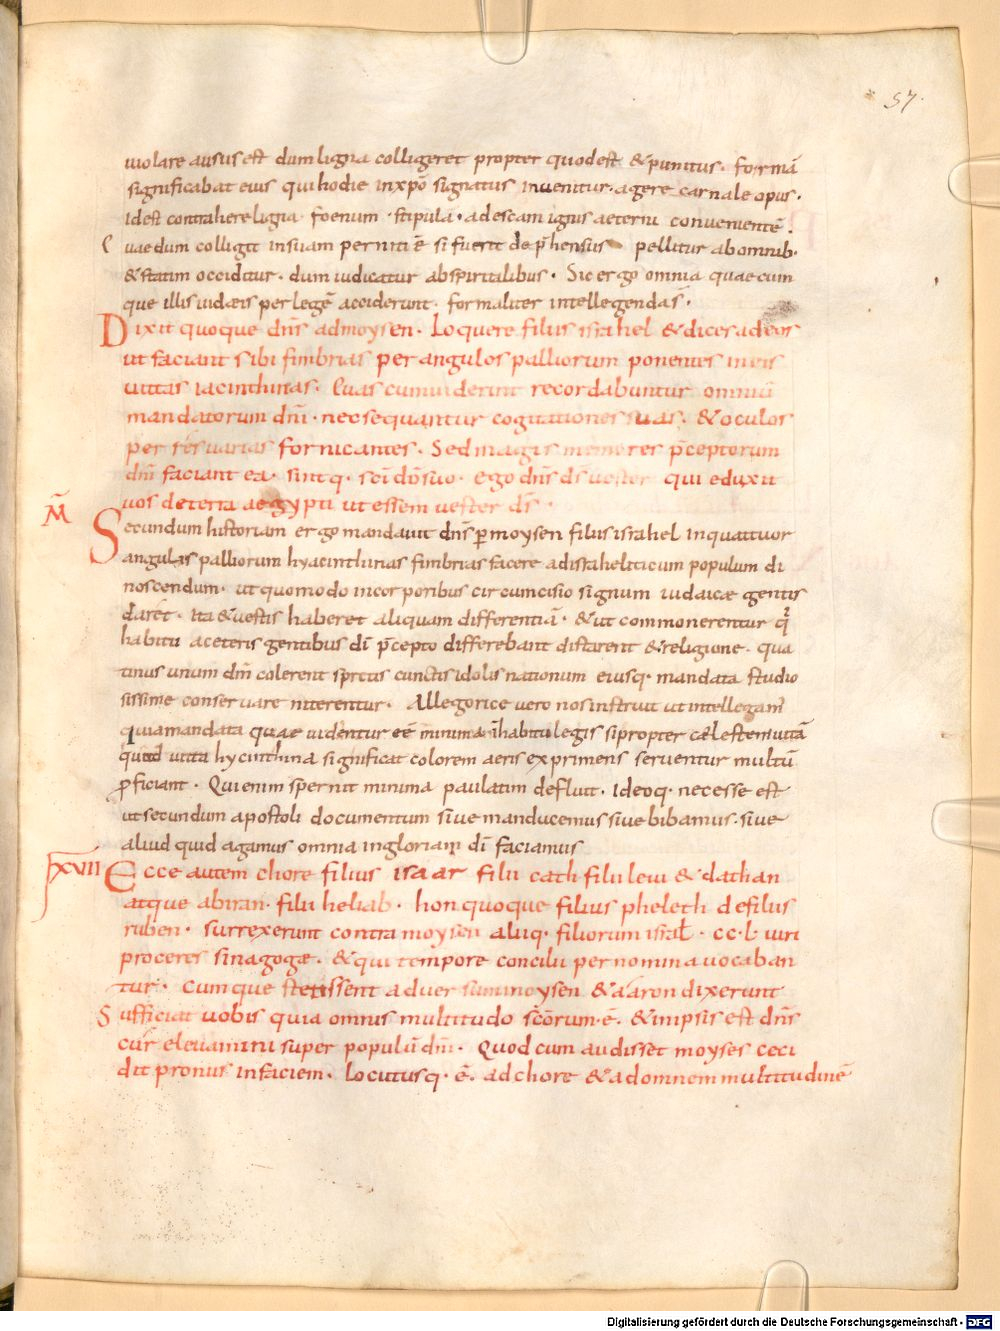 57
uiolare ausus est dum ligna colligeret propter quod est & punitus. formā
significabat eius qui hodie in xp̄o signatus inuenitur. agere carnale opus.
Id est contrahere ligna. foenum. stipulā. ad escam ignis aeterni conuenientē.
Quae dum colligit in suam perniti ē si fuerit dep̄hensus pellitur ab omnib.
& statim occiditur. dum iudicatur ab spiritalibus. Sic ergo omnia quaecum
que illis iudæis per legē acciderunt. formaliter intellegenda s̄.
Dixit quoque dn̄s ad moysen. Loquere filiis israhel & dices ad eos
ut faciant sibi fimbrias per angulos palliorum ponentes in eis
uittas iacinthinas. Quas cum uiderint recordabuntur omniū
mandatorum dn̄i. nec sequantur cogitationes suas. & oculos
per res uarias fornicantes. Sed magis memores p̄ceptorum
dn̄i faciant ea. sintq. sc̄i dō suo. ego dn̄s ds̄ uester qui eduxit
uos de terra aegypti ut essem uester ds̄.
M̄
Secundum historiam ergo mandauit dn̄s p moysen filiis israhel in quattuor
angulas palliorum hyacinthinas fimbrias facere ad israheliticum populum di
noscendum. ut quomodo in corporibus circumcisio signum iudaicæ gentis
daret. ita & uestis haberet aliquam differentiā. & ut commonerentur q
habitu a ceteris gentibus dī p̄cepto differebant distarent & religione. qua
tinus unum dm̄ colerent spretis cunctis idolis nationum eiusq. mandata studio
sissime conseruare niterentur. Allegorice uero nos instruit ut intellegam
quia mandata quae uidentur eē minima in habitu legis si propter cælestem uitā
quid uitta hycinthina significat colorem aeris exprimens seruentur multū
proficiant. Qui enim spernit minima paulatim defluit. Ideoq. necesse est
ut secundum apostoli documentum siue manducemus siue bibamus. siue
aliud quid agamus omnia in gloriam dī faciamus
hxvii Ecce autem chore filius isaar filii cath filii leui & dathan
atque abiran. filii heliab. hon quoque filius pheleth de filiis
ruben. surrexerunt contra moysen aliiq. filiorum isral. cc.l. uiri
proceres sinagogæ. & qui tempore concilii per nomina uocaban
tur. Cumque stetissent aduersum moysen & aaron dixerunt
Sufficiat uobis quia omnis multitudo sc̄orum. ē. & in ipsis est dn̄s
cur eleuamini super populū dn̄i. Quod cum audisset moyses ceci
dit pronus in faciem. Locutusq. ē. ad chore & ad omnem multitudinē
Digitalisierung gefördert durch die Deutsche Forschungsgemeinschaft - DFG